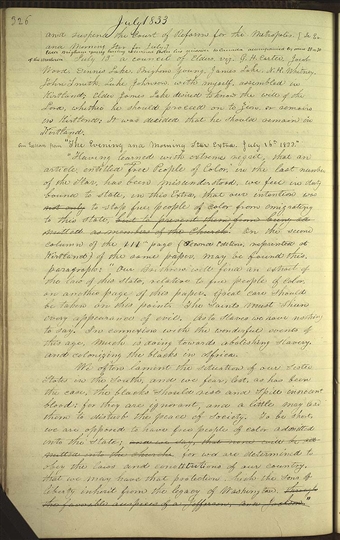 326
July 1833
and suspend the Court of Reform for the Metropolis. (In Ev.
and Morning Star for July)
July 13th a council of Elders viz: G. H. Carter, Jacob
Wood, Dennis Lake, Brigham Young, James Lake, N. K. Whitney,
John Smith, Luke Johnson with myself, assembled in
Kirtland; Elder James Lake desired to know the will of the
Lord, whether he should proceed on to Zion, or remain
in Kirtland; It was decided that he should remain in
Kirtland.
"The Evening and Morning Star Extra July 16th 1833."
"Having learned with extreme regret, that an
article, entitled free People of Color, in the last number
of the Star, has been misunderstood, we feel in duty
bound to state, in this Extra, that our intention was
not only to stop free people of color from emigrating
to this state, but to prevent them from being ad-
mitted as members of the Church. On the second
column of the 111th page of the same paper, may be found this
paragraph: "Our brethren will find an extract of
the law of this state, relative to free people of color
on another page of this paper. Great care should
be taken on this point. The saints must shun
every appearance of evil. As to slaves we have nothing
to say. In connexion with the wonderful events of
this age, much is doing towards abolishing slavery,
and colonizing the blacks in Africa.
We often lament the situation of our sister
states in the south, and we fear, lest, as has been
the case, the blacks should rise and spill innocent
blood: for they are ignorant, and a little may lead
them to disturb the peace of society. To be short,
we are opposed to have free people of color admitted
into the state; and we say, that none will be ad-
mitted into the church for we are determined to
obey the laws and constitutions of our country,
that we may have that protection which the sons of
liberty inherit from the legacy of Washington, through
the favorable auspices of a Jefferson, and Jackson."